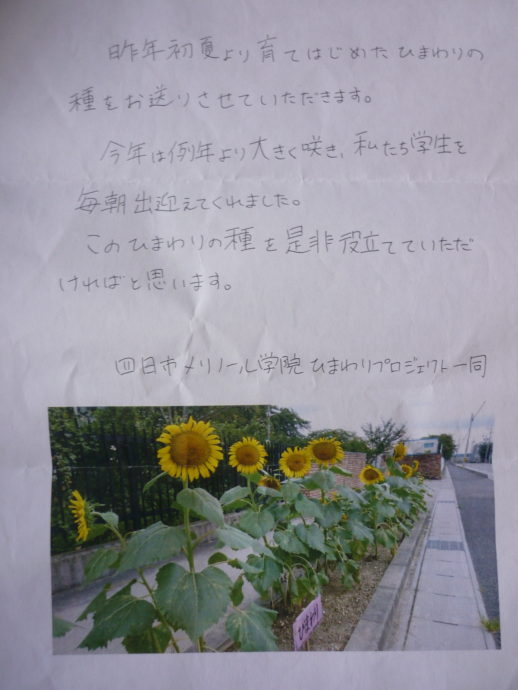 昨年初夏より育てはじめたひまわりの
種をお送りさせていただきます。
今年は例年より大きく咲き、私たち学生を
毎朝出迎えてくれました。
このひまわりの種を是非役立てていただ
ければと思います。
四日市メリノール学院ひまわりプロジェクト一同
ひまわり